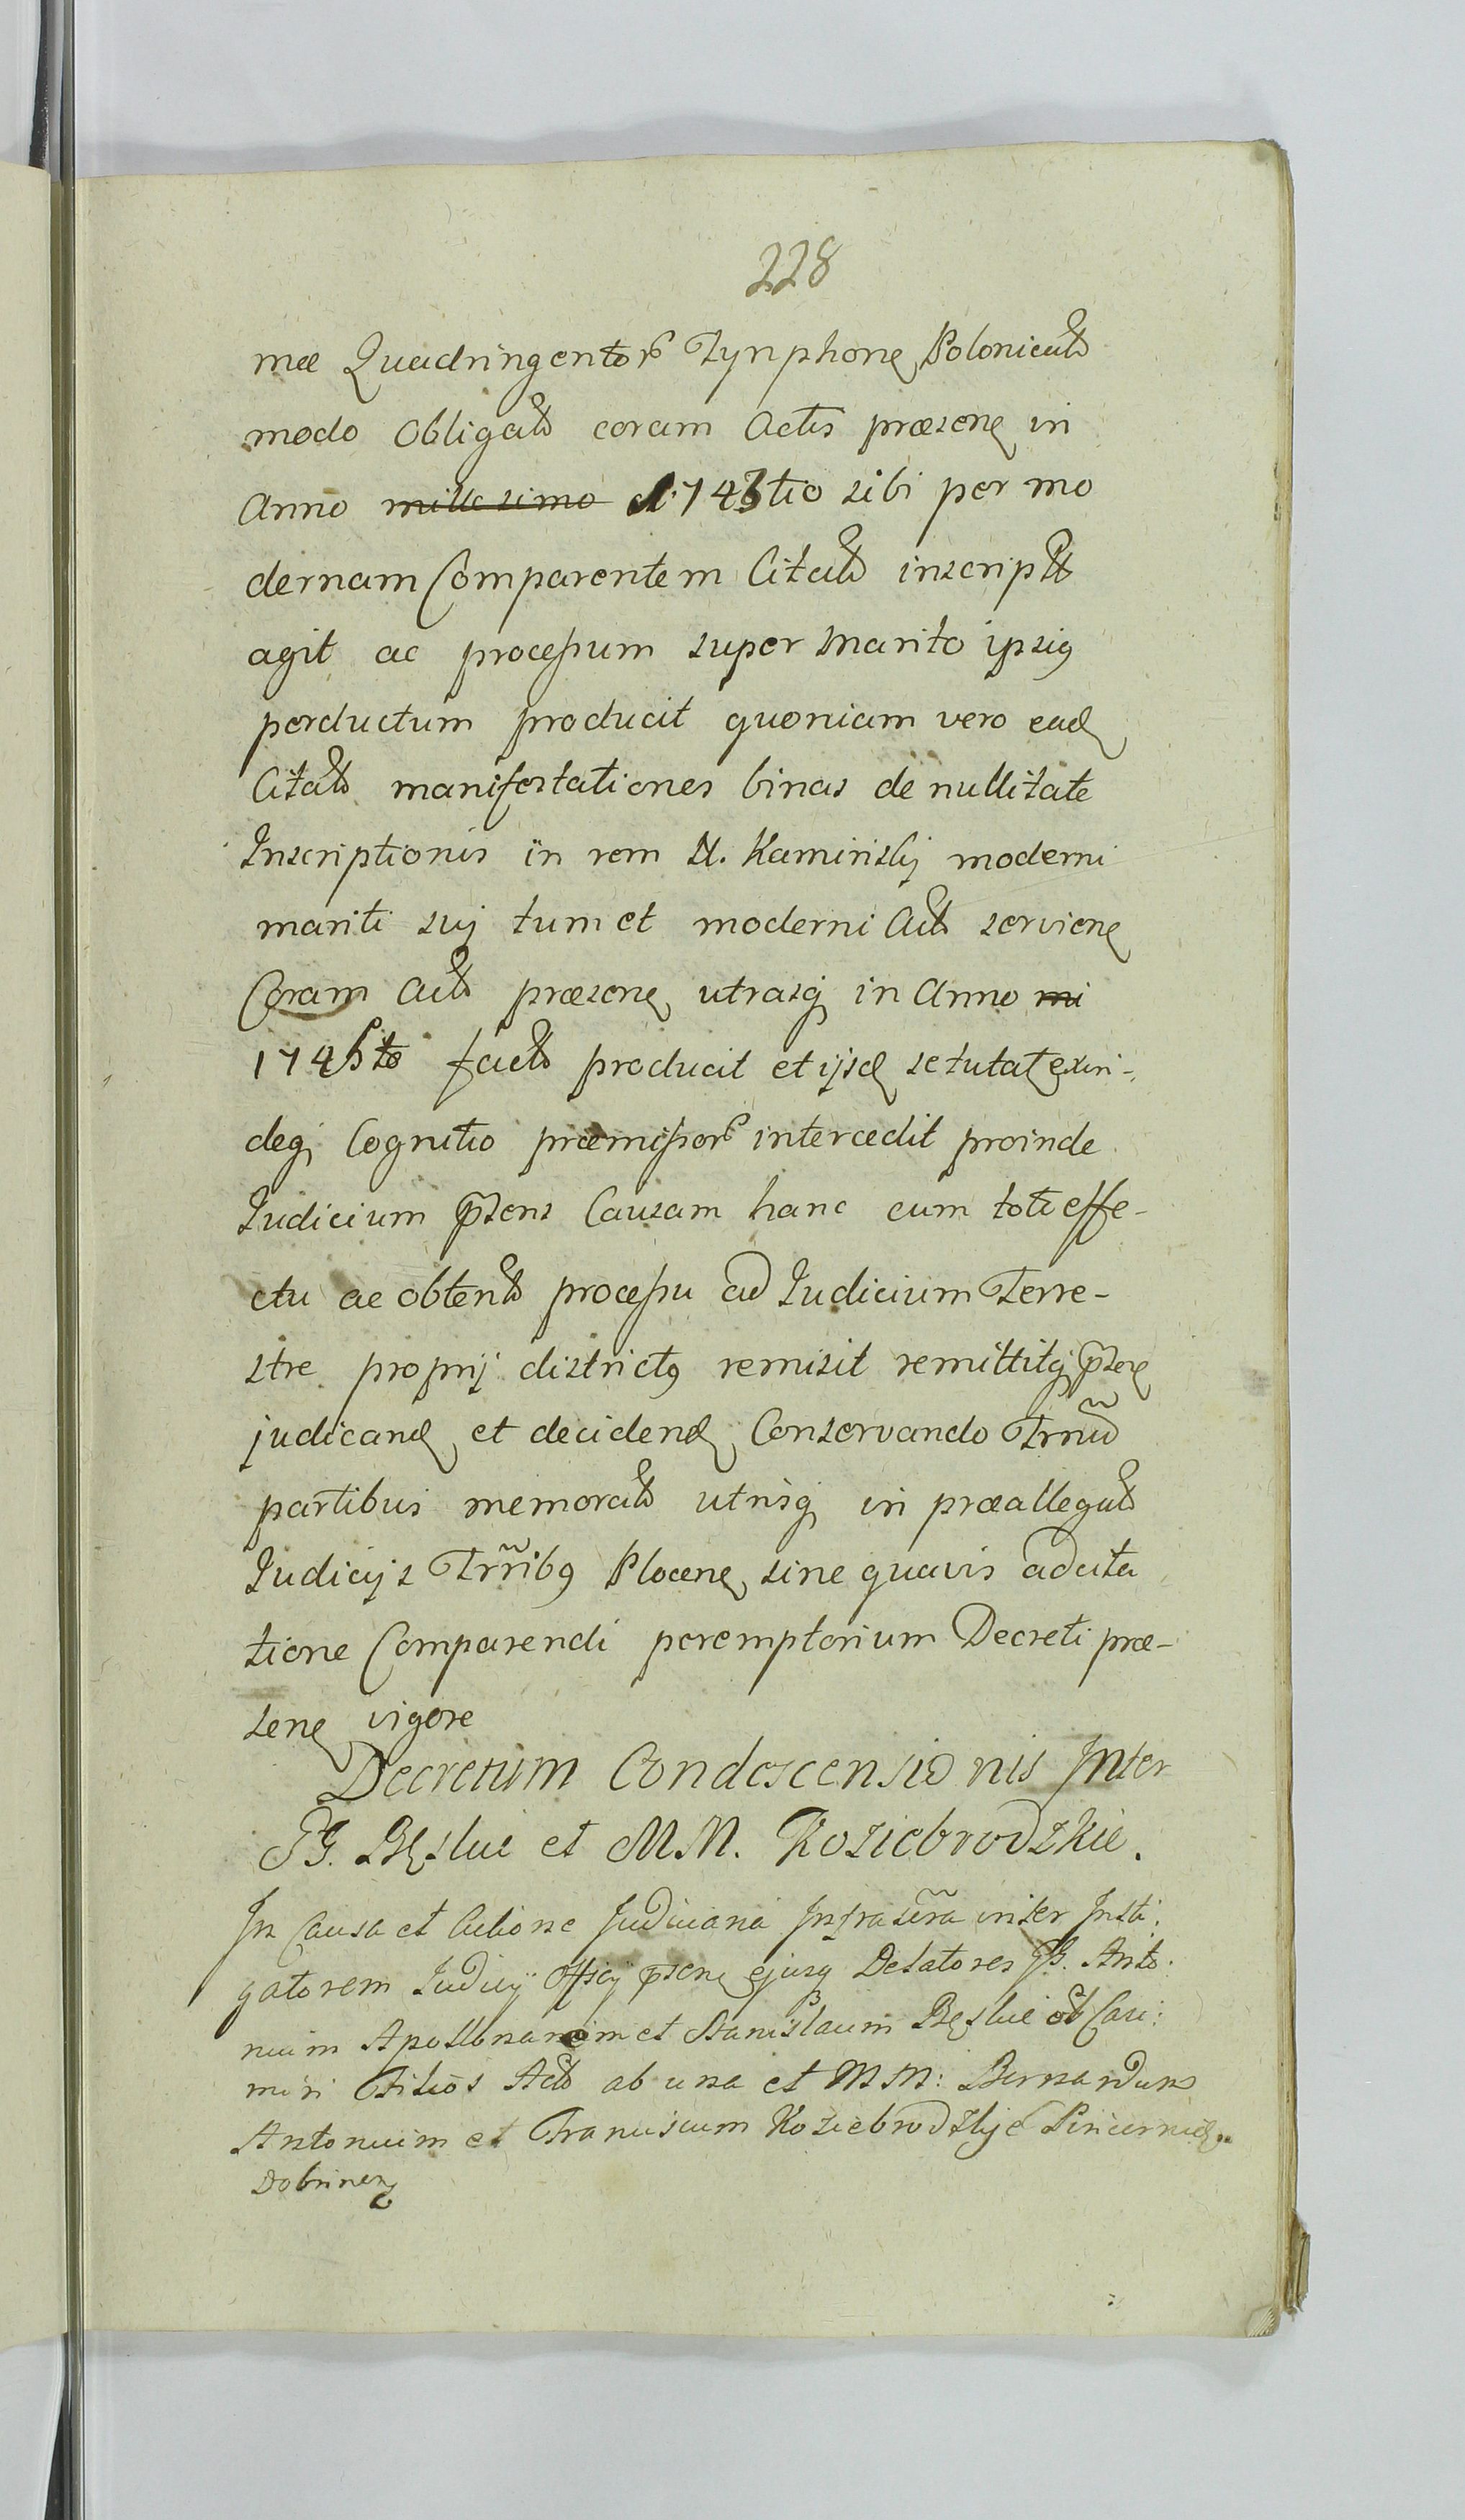 228
mæ Quadringentor Tynphone Polonicał
modo Obligał coram Actis præsene in
Anno millesimo 1743tio sibi per mo
dernam Comparentem Citał inscript
agit ac processum super Marito ipsig
perductum producit quoniam vero ead
Citał manifestationes binas de nullitate
Inscriptionis in rem N. Kamińskij moderni
mariti suj tum et moderni Act serviene
Coram Act præsene utrasq in Anno mi
1745to fact producit et ijsd se tutat exin-
deq Cognitio præmissor intercedit proinde
Judicium pṡens Causam hanc cum toto effe-
ctu ac obtent processu ad Judicium Terre-
stre proprij districtg remisit remittitq pṡene
judicand et decidend Conservando Trnũ
partibus memorał utrisq in præallegat
Judicijs Trr̃ibg Plocene sine quavis adcita
tione Comparendi peremptorium Decreti præ-
sene vigore
Decretum Condescensionis Inter
GG. Bęskie et MM. Koziebrodzkie.
In Causa et Actione Judiciaria Infrascr̃a inter Insti.
gatorem Judicij Officij pṡene ejusq Delatores GG. Anto.
nium Apollonarem et Stanislaum Bęskie olt Casi:
miri Filios Act ab una et MM: Bernardum
Antonium et Franciscum Koziebrodzkije Pincernid.
Dobrinen